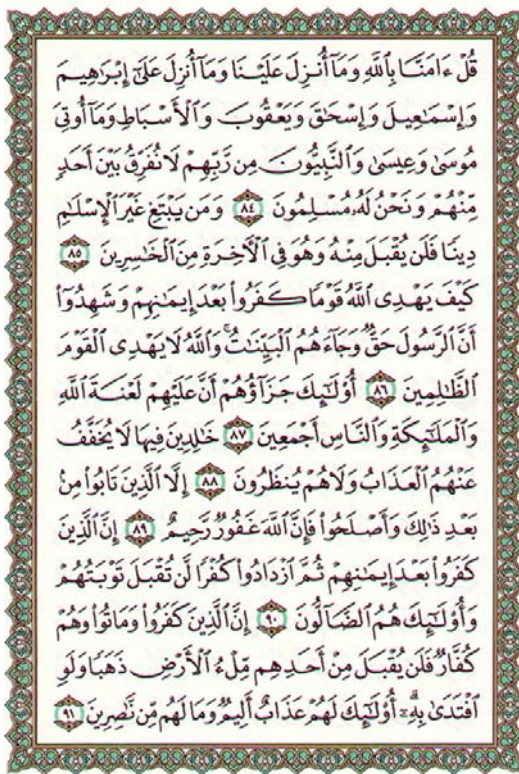 قُلْ ءَامَنَّا بِٱللَّهِ وَمَآ أُنزِلَ عَلَيْنَا وَمَآ أُنزِلَ عَلَىٰٓ إِبْرَٰهِيمَ
وَإِسْمَٰعِيلَ وَإِسْحَٰقَ وَيَعْقُوبَ وَٱلْأَسْبَاطِ وَمَآ أُوتِىَ
مُوسَىٰ وَعِيسَىٰ وَٱلنَّبِيُّونَ مِن رَّبِّهِمْ لَا نُفَرِّقُ بَيْنَ أَحَدٍ
مِّنْهُمْ وَنَحْنُ لَهُۥ مُسْلِمُونَ ٨٤ وَمَن يَبْتَغِ غَيْرَ ٱلْإِسْلَٰمِ
دِينًا فَلَن يُقْبَلَ مِنْهُ وَهُوَ فِى ٱلْأَخِرَةِ مِنَ ٱلْخَٰسِرِينَ ٨٥
كَيْفَ يَهْدِى ٱللَّهُ قَوْمًا كَفَرُوا۟ بَعْدَ إِيمَٰنِهِمْ وَشَهِدُوٓا۟
أَنَّ ٱلرَّسُولَ حَقٌّ وَجَآءَهُمُ ٱلْبَيِّنَٰتُ ۚ وَٱللَّهُ لَا يَهْدِى ٱلْقَوْمَ
ٱلظَّٰلِمِينَ ٨٦ أُو۟لَٰٓئِكَ جَزَآؤُهُمْ أَنَّ عَلَيْهِمْ لَعْنَةَ ٱللَّهِ
وَٱلْمَلَٰٓئِكَةِ وَٱلنَّاسِ أَجْمَعِينَ ٨٧ خَٰلِدِينَ فِيهَا لَا يُخَفَّفُ
عَنْهُمُ ٱلْعَذَابُ وَلَا هُمْ يُنظَرُونَ ٨٨ إِلَّا ٱلَّذِينَ تَابُوا۟ مِنۢ
بَعْدِ ذَٰلِكَ وَأَصْلَحُوا۟ فَإِنَّ ٱللَّهَ غَفُورٌ رَّحِيمٌ ٨٩ إِنَّ ٱلَّذِينَ
كَفَرُوا۟ بَعْدَ إِيمَٰنِهِمْ ثُمَّ ٱزْدَادُوا۟ كُفْرًا لَّن تُقْبَلَ تَوْبَتُهُمْ
وَأُو۟لَٰٓئِكَ هُمُ ٱلضَّآلُّونَ ٩٠ إِنَّ ٱلَّذِينَ كَفَرُوا۟ وَمَاتُوا۟ وَهُمْ
كُفَّارٌ فَلَن يُقْبَلَ مِنْ أَحَدِهِم مِّلْءُ ٱلْأَرْضِ ذَهَبًا وَلَوِ
ٱفْتَدَىٰ بِهِۦٓ ۗ أُو۟لَٰٓئِكَ لَهُمْ عَذَابٌ أَلِيمٌ وَمَا لَهُم مِّن نَّٰصِرِينَ ٩١